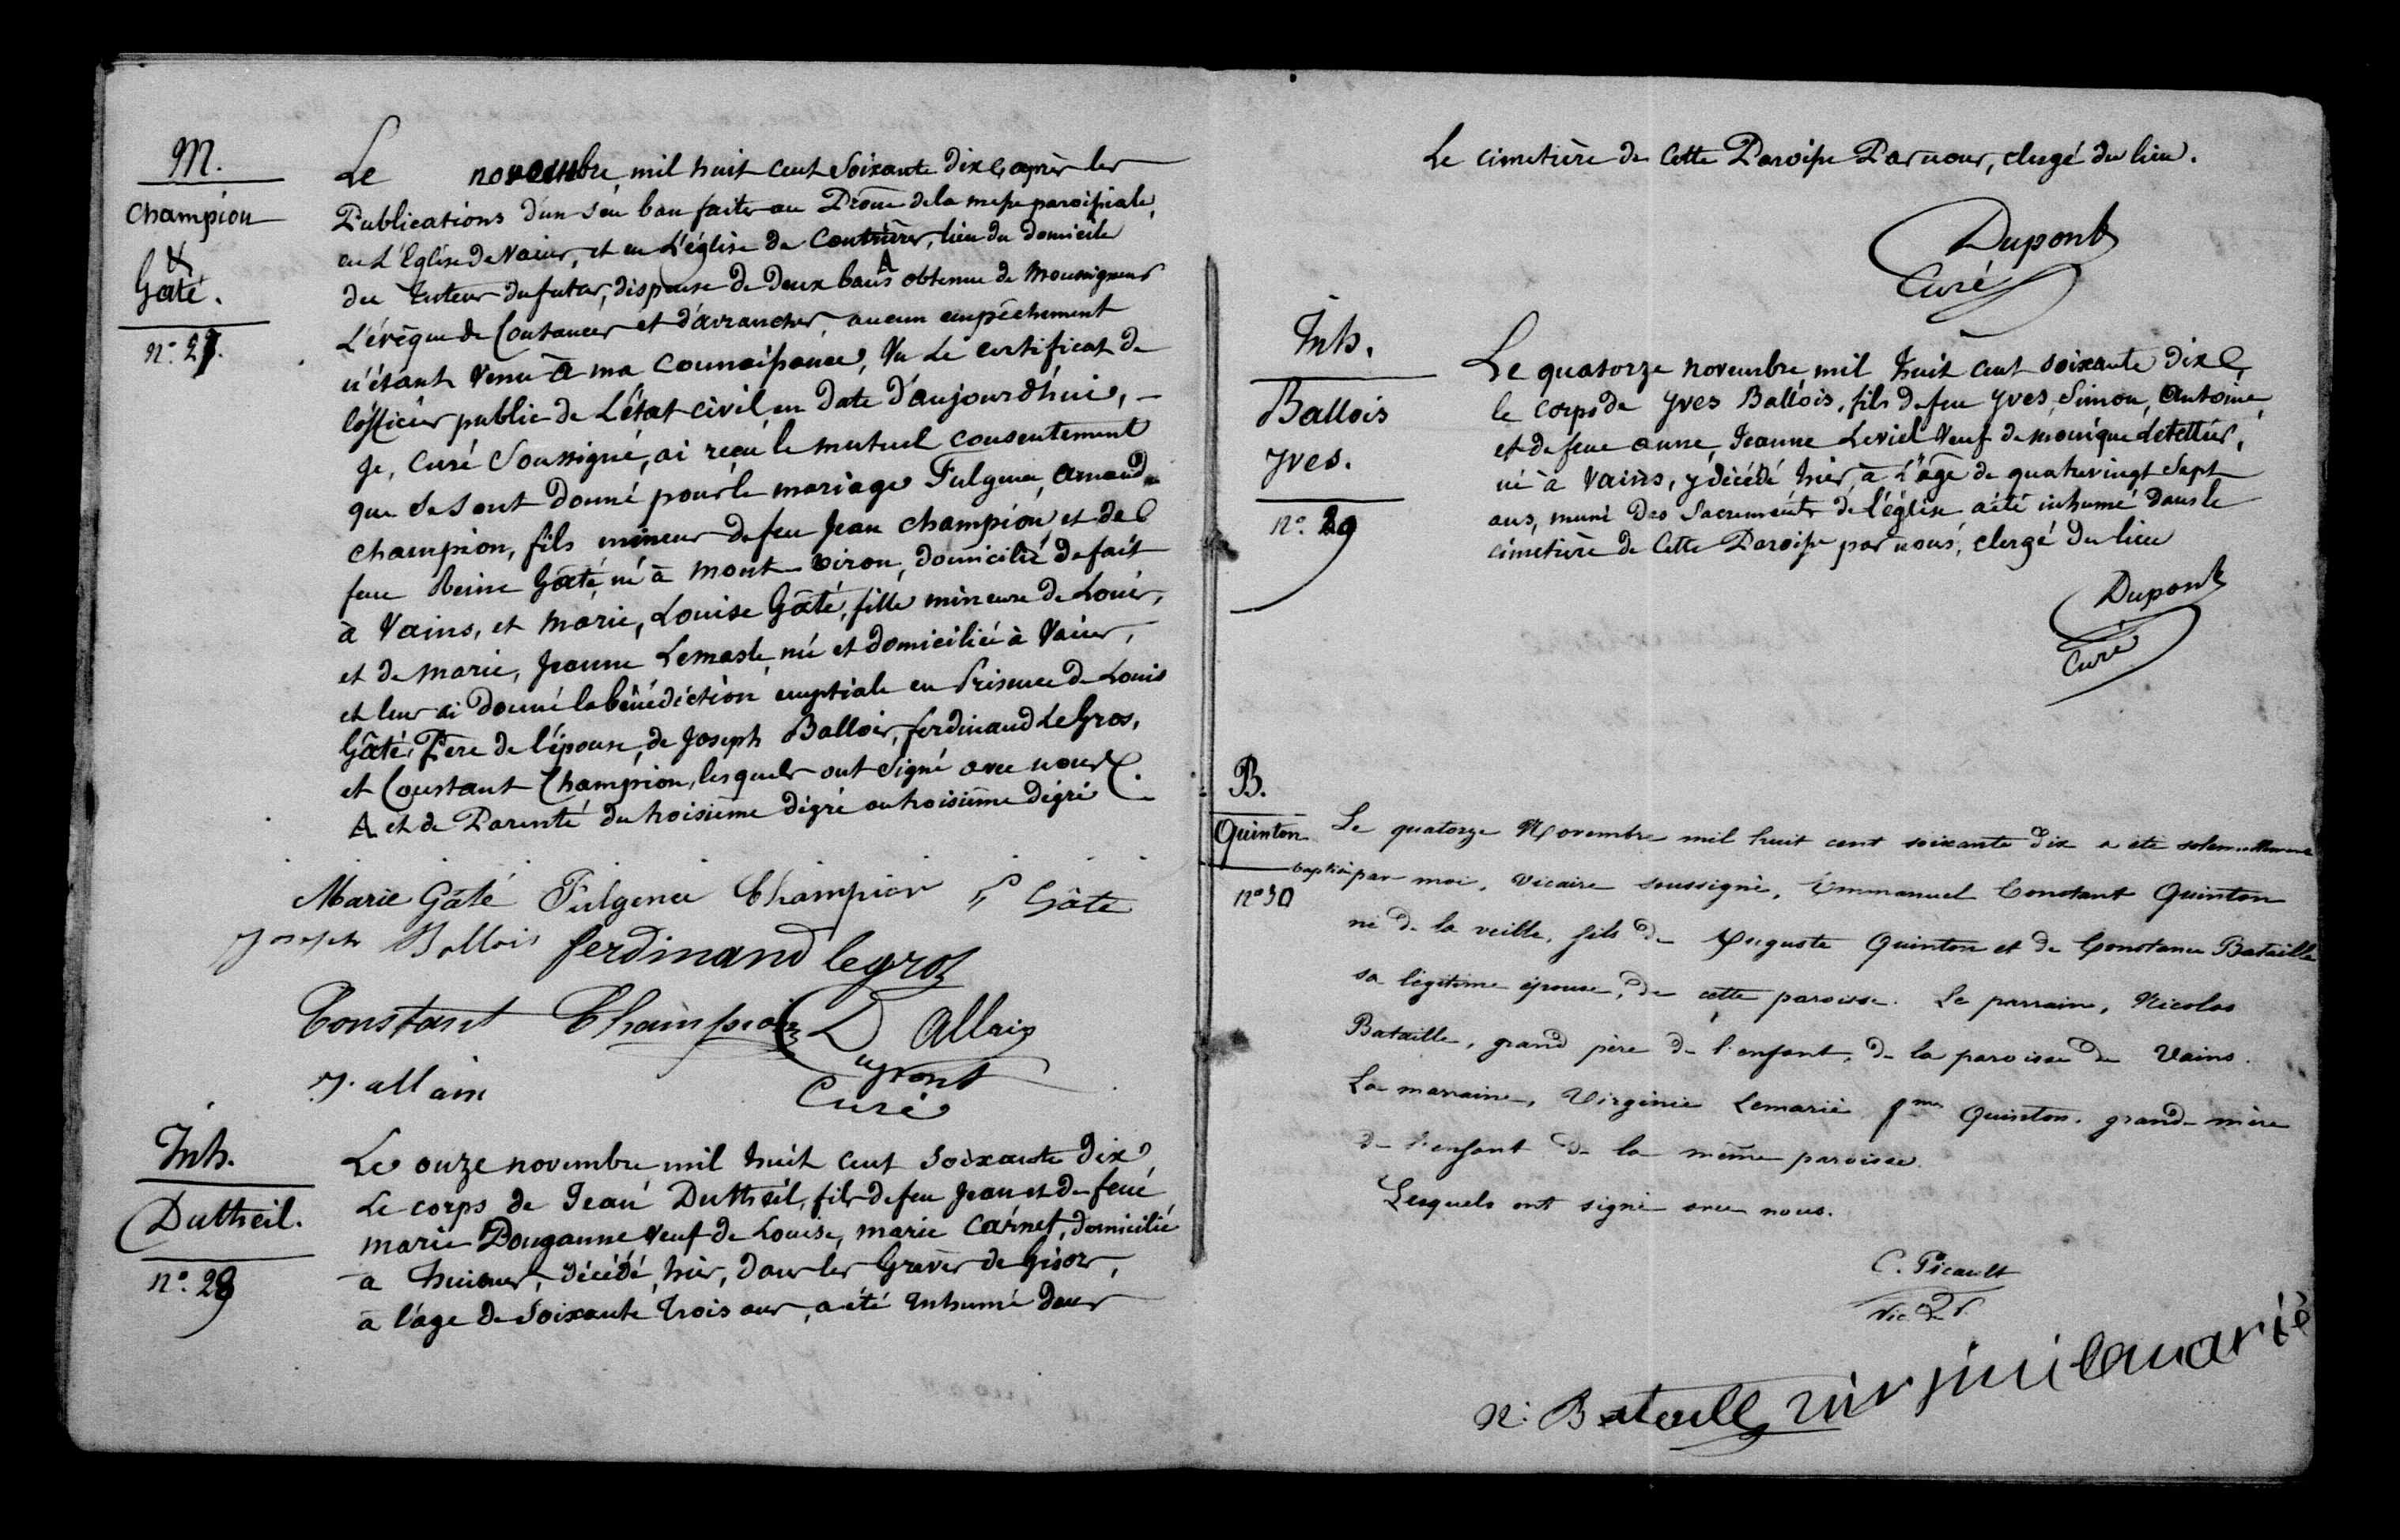 M.
Champion
&
Gâté.
n° 27.
Le novembre mil huit cent soixante dix, après les
Publications d'un seul ban faites au Prône de la messe paroissiale,
en L'Eglise de Vains, et en L'église de Coutrières, lieu du domicile
du Tuteur du futur, dispense de deux bans A obtenue de Monseigneur
L'évêque de Coutances et d'avranches, aucun empêchement
n'étant venu à ma connaissance, Vu Le certificat de
l'officier public de L'état civil en date d'aujourd'hui, -
Je, Curé Soussigné, ai reçu le mutuel consentement
que se sont donné pour le mariage Fulgence, Amand
Champion, fils mineur de feu Jean Champion et de
feue Reine Gâté, né à Mont-viron, domicilié de fait
à Vains, et Marie, Louise Gâté, fille mineure de Louis,
et de Marie, Jeanne Lemasle, née et domiciliée à Vains,
et leur ai donné la bénédiction nuptiale en Présence de Louis
Gâté, Père de l'épouse, de Joseph Ballois, ferdinand LeGros,
et Constant Champion, lesquels ont signé avec nous.
A et de Parenté du troisième dégré au troisième dégré
Marie Gâté Fulgence Champion Gâté
Joseph Ballois ferdinand legros
Constant Champion Allain
J. allain Dupont
Curé
Inh.
Dutheil.
n° 28
Le onze novembre mil huit cent soixante dix
Le corps de Jean Dutheil, fils de feu Jean et de feue
marie Douganne veuf de Louise, marie Carnet, domicilié
à huisnes, décédé, hier, dans les Grèves de Gisors,
à l'âge de soixante trois ans, a été Inhumé dans
Le cimetière de Cette Paroisse Par nous, clergé du lieu.
Dupont
Curé
Inh.
Ballois
Yves.
n° 29
Le quatorze novembre mil huit cent soixante dix
le corps de Yves Ballois, fils de feu Yves, Simon, Antoine,
et de feue anne, Jeanne Leviel veuf de monique Letellier,
né à Vains, y décédé hier, à L'âge de quatrevingt sept
ans, muni des Sacrements de L'église a été inhumé dans le
cimetière de Cette Paroisse par nous, clergé du lieu
Dupont
Curé
B.
Quinton
n° 30
Le quatorze Novembre mil huit cent soixante dix a été solennellement
baptisé par moi, Vicaire soussigné, Emmanuel Constant Quinton
né de la veille, fils de Auguste Quinton et de Constance Bataille
sa légitime épouse, de cette paroisse. Le parrain, Nicolas
Bataille, grand père de l'enfant, de la paroisse de Vains.
La marraine, Virginie Lemarié fme Quinton. grand-mère
de l'enfant de la même paroisse.
Lesquels ont signé avec nous.
C. Picault
Vic.
N. Bataille virjini lemarié